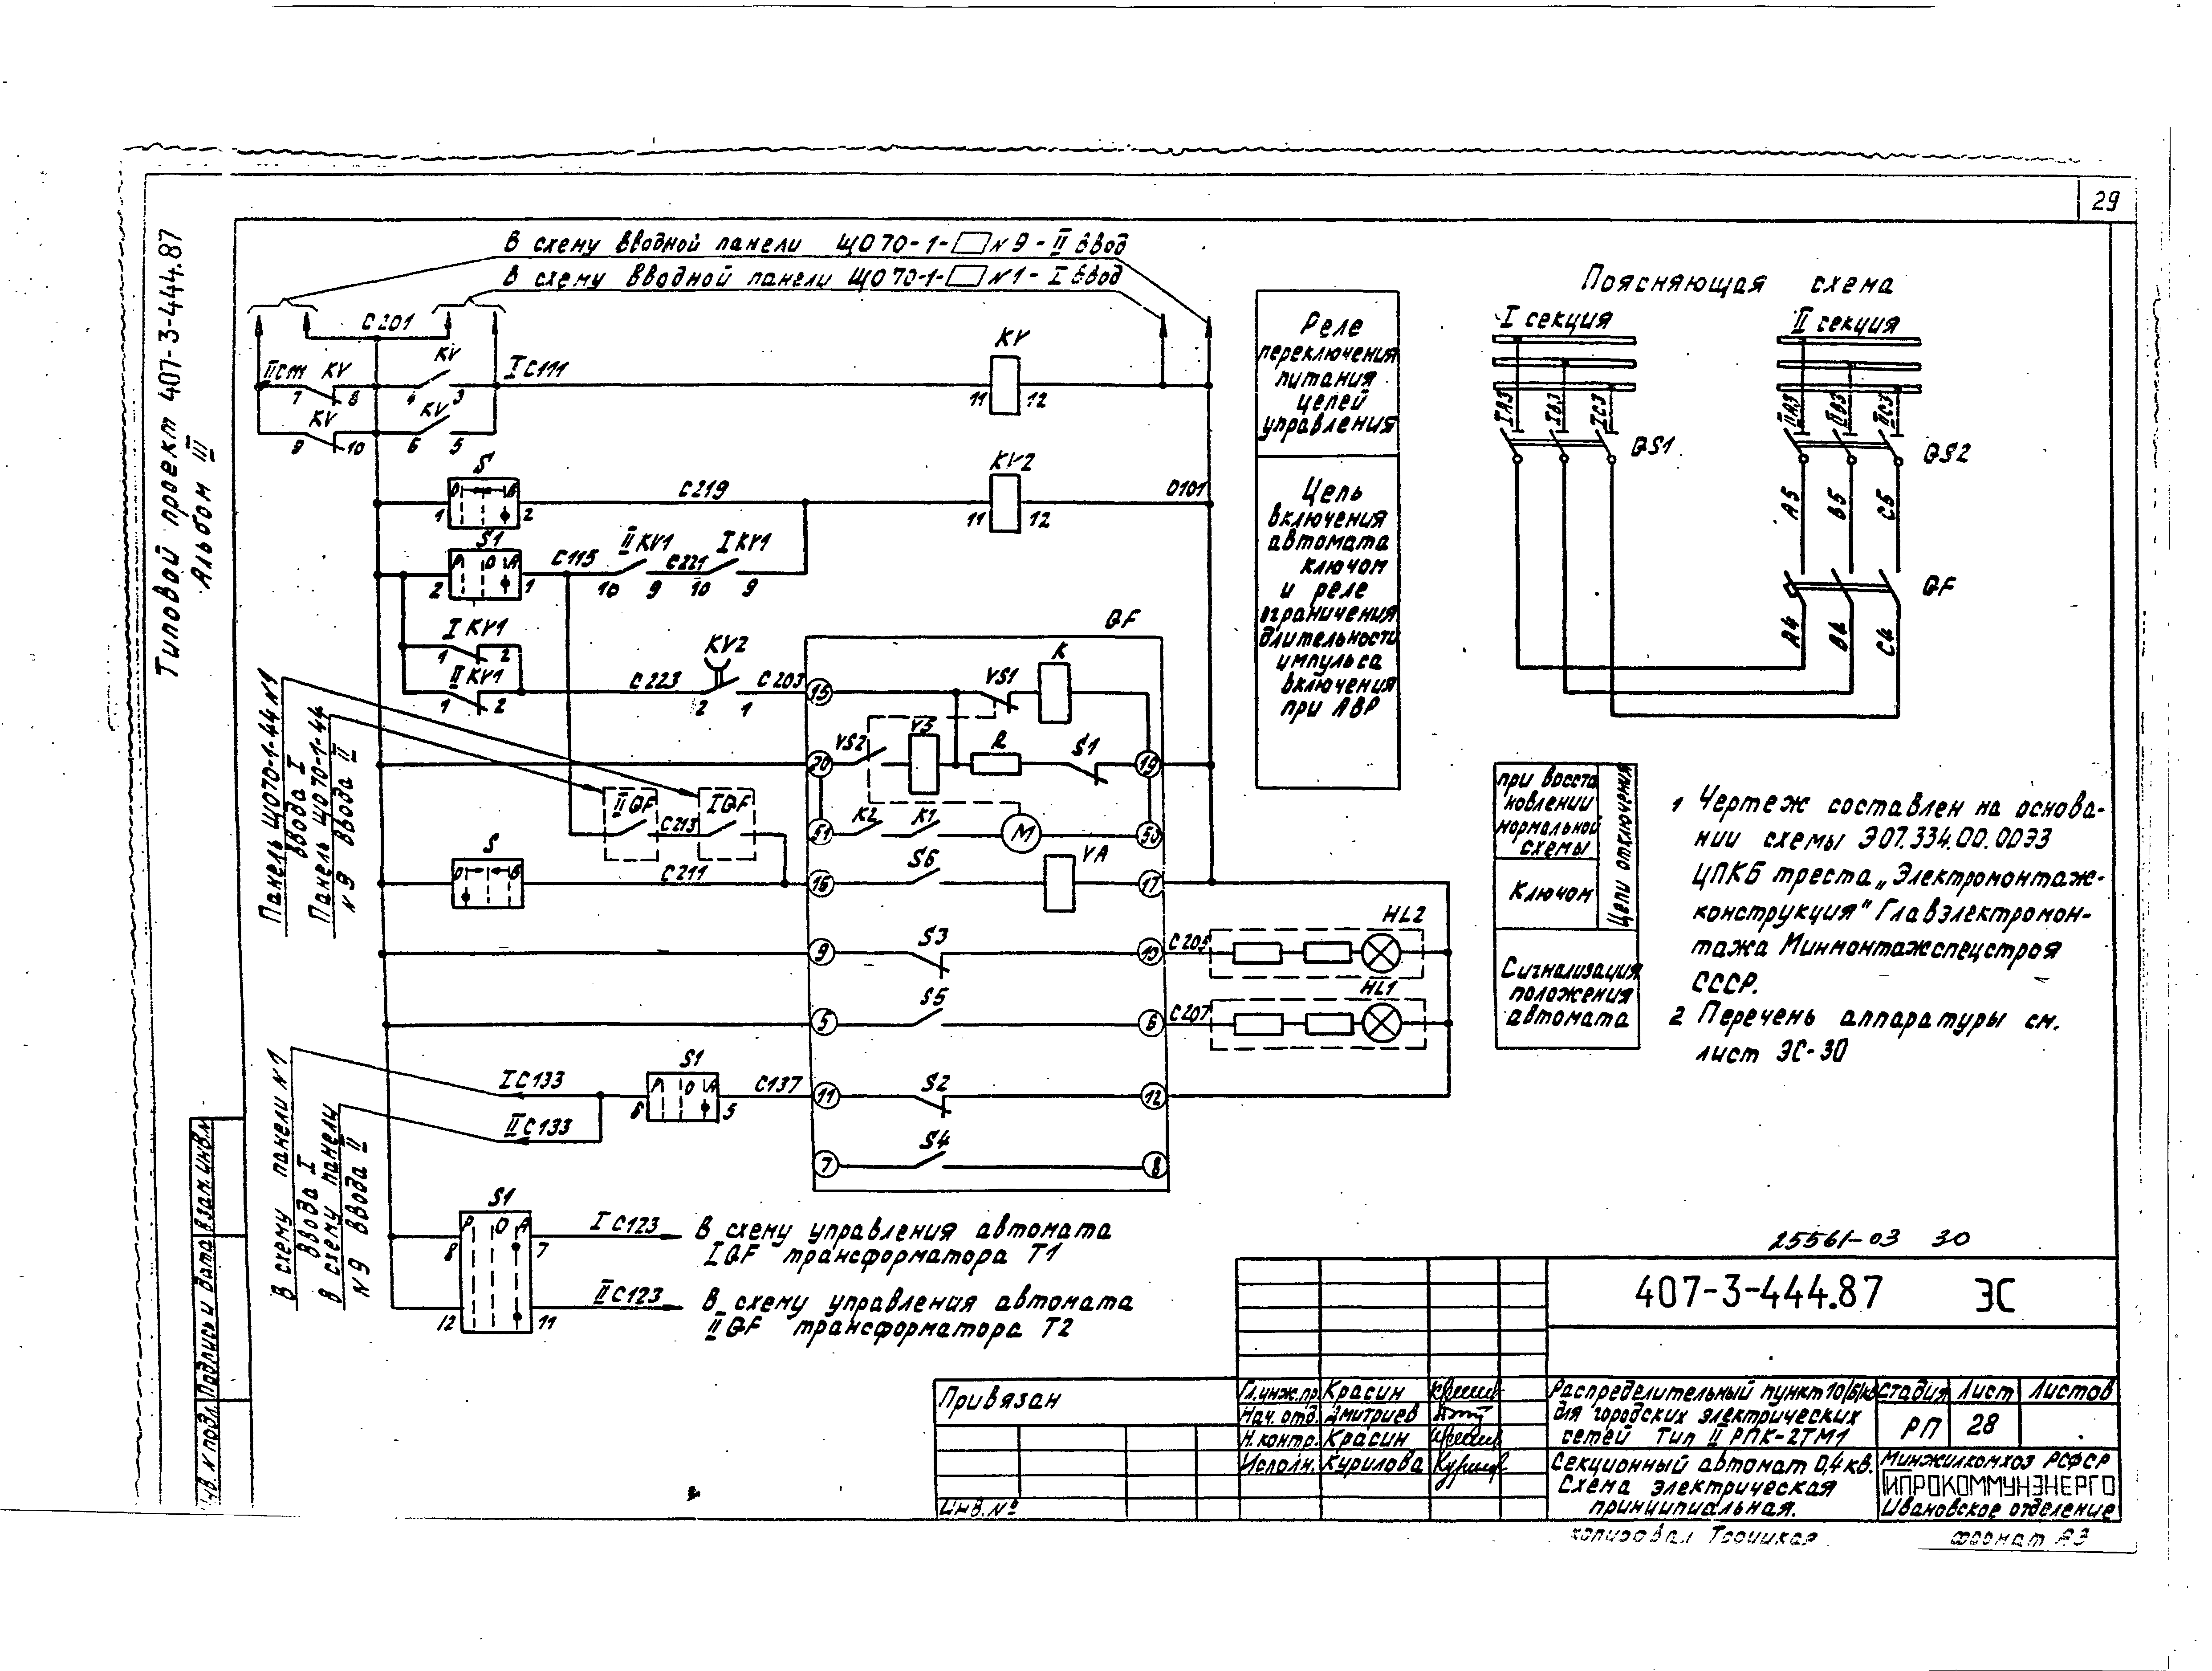 29
Типовой проект 407-3-444.87
Альбом III
В схему вводной панели ЩО70-1-□ №9 - II ввод
В схему вводной панели ЩО70-1-□ №1 - I ввод
С201
IIСт
KV
7
8
KV
4
3
IС111
KV
11
12
KV
9
10
KV
6
5
S
О
В
1
2
С219
KV2
11
12
0101
S1
Р
О
А
2
1
С115
II KV1
10
9
С221
I KV1
10
9
I KV1
1
2
II KV1
1
2
С223
KV2
2
1
С203
QF
15
YS1
K
20
YS2
YS
R
S1
19
51
K2
K1
М
50
II QF
С213
I QF
S
О
В
С211
16
S6
YA
17
9
S3
10
С205
HL2
5
S5
6
С207
HL1
IС133
IIС133
S1
Р
О
А
6
5
С137
11
S2
12
7
S4
8
S1
Р
О
А
8
7
12
11
IС123
В схему управления автомата
I QF трансформатора Т1
IIС123
В схему управления автомата
II QF трансформатора Т2
Панель ЩО70-1-44 №1
Ввода I
Панель ЩО70-1-44
№9 Ввода II
В схему панели №1
Ввода I
В схему панели
№9 Ввода II
Реле
переключения
питания
цепей
управления
Цепь
включения
автомата
ключом
и реле
ограничения
длительности
импульса
включения
при АВР
Поясняющая схема
I секция
II секция
IА3
IВ3
IС3
IIА3
IIВ3
IIС3
QS1
QS2
А5
В5
С5
QF
А4
В4
С4
при восста
новлении
нормальной
схемы
Ключом
Цепи отключения
Сигнализация
положения
автомата
1 Чертеж составлен на основа-
нии схемы Э07.334.00.00ЭЗ
ЦПКБ треста „Электромонтаж-
конструкция" Главэлектромон-
тажа Минмонтажспецстроя
СССР.
2 Перечень аппаратуры см.
лист ЭС-30
25561-03 30
407-3-444.87 ЭС
Привязан
Инв. №
Гл.инж.пр. Красин
Нач. отд. Дмитриев
Н. контр. Красин
Исполн. Курилова
Распределительный пункт 10(6)кв
для городских электрических
сетей Тип II РПК-2ТМ1
Стадия Лист Листов
РП 28
Секционный автомат 0,4 кв.
Схема электрическая
принципиальная.
Минжилкомхоз РСФСР
ГИПРОКОММУНЭНЕРГО
Ивановское отделение
копировал Троицкая
формат А3
Инв. № подл.
Подпись и дата
Взам. инв. №